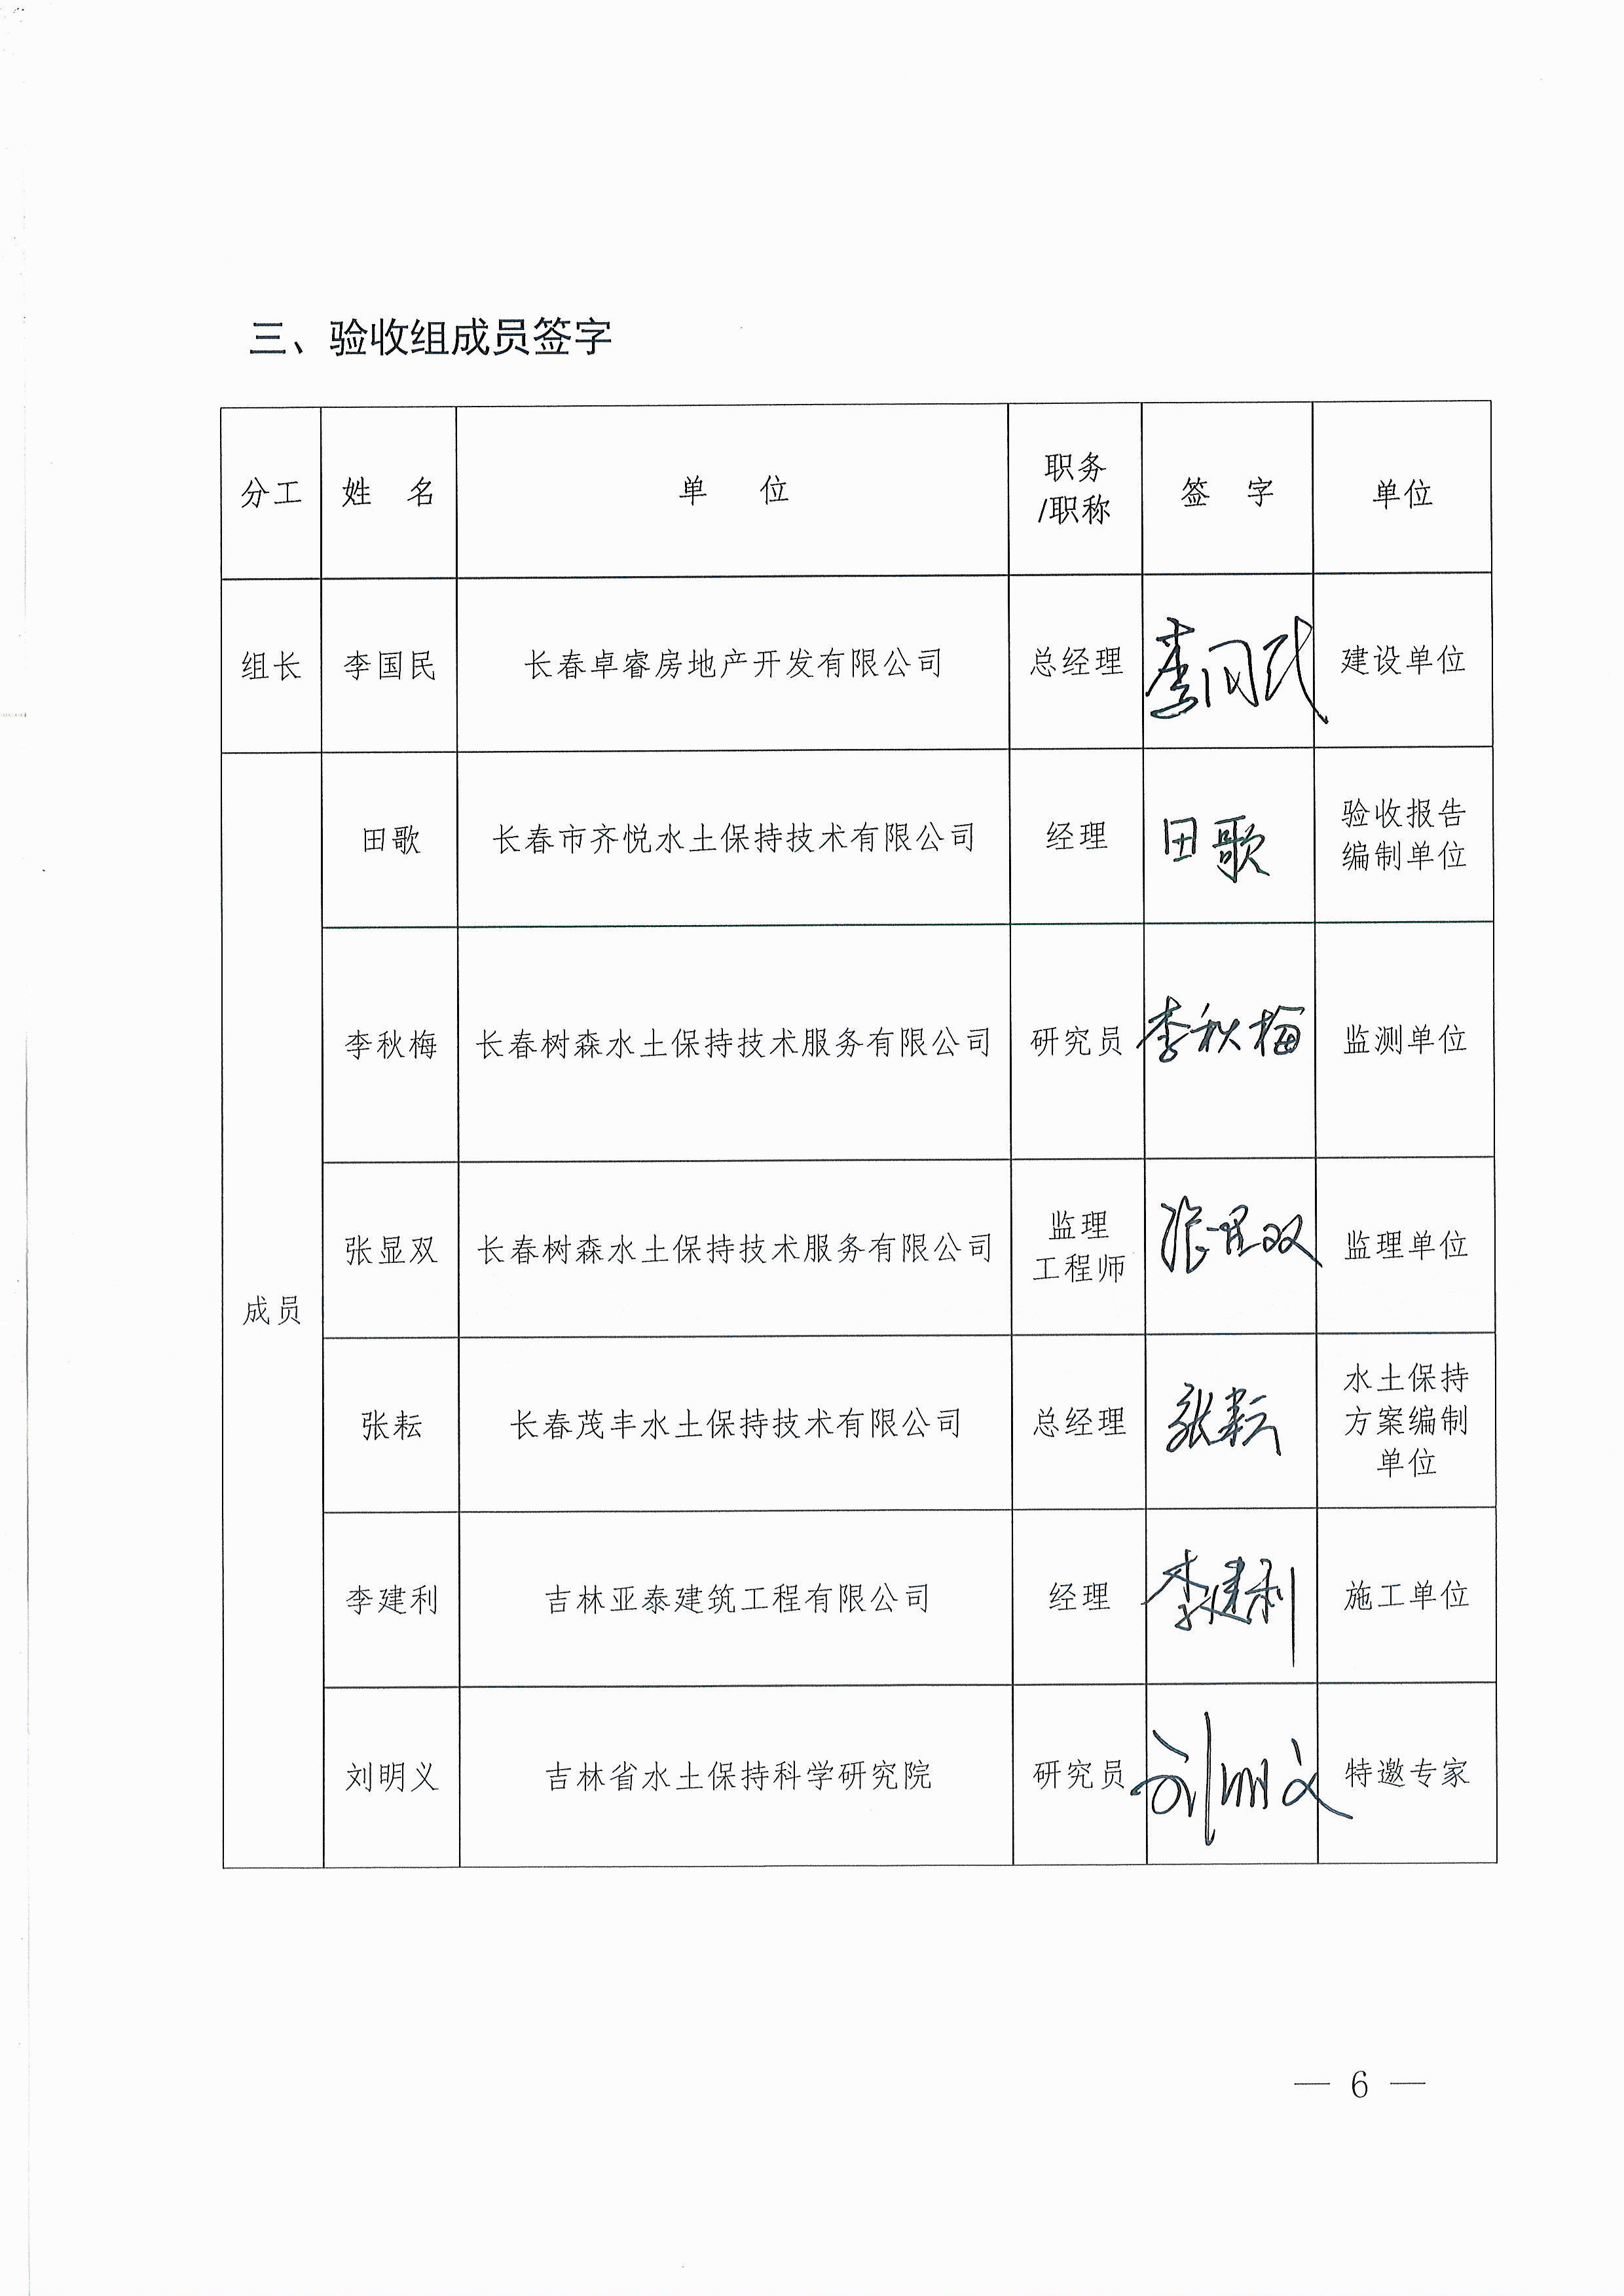 三、验收组成员签字
分工 姓 名 单 位 职务/职称 签 字 单位
组长 李国民 长春卓睿房地产开发有限公司 总经理 李国民 建设单位
成员
田歌 长春市齐悦水土保持技术有限公司 经理 田歌 验收报告编制单位
李秋梅 长春树森水土保持技术服务有限公司 研究员 李秋梅 监测单位
张显双 长春树森水土保持技术服务有限公司 监理工程师 张显双 监理单位
张耘 长春茂丰水土保持技术有限公司 总经理 张耘 水土保持方案编制单位
李建利 吉林亚泰建筑工程有限公司 经理 李建利 施工单位
刘明义 吉林省水土保持科学研究院 研究员 刘明义 特邀专家
— 6 —